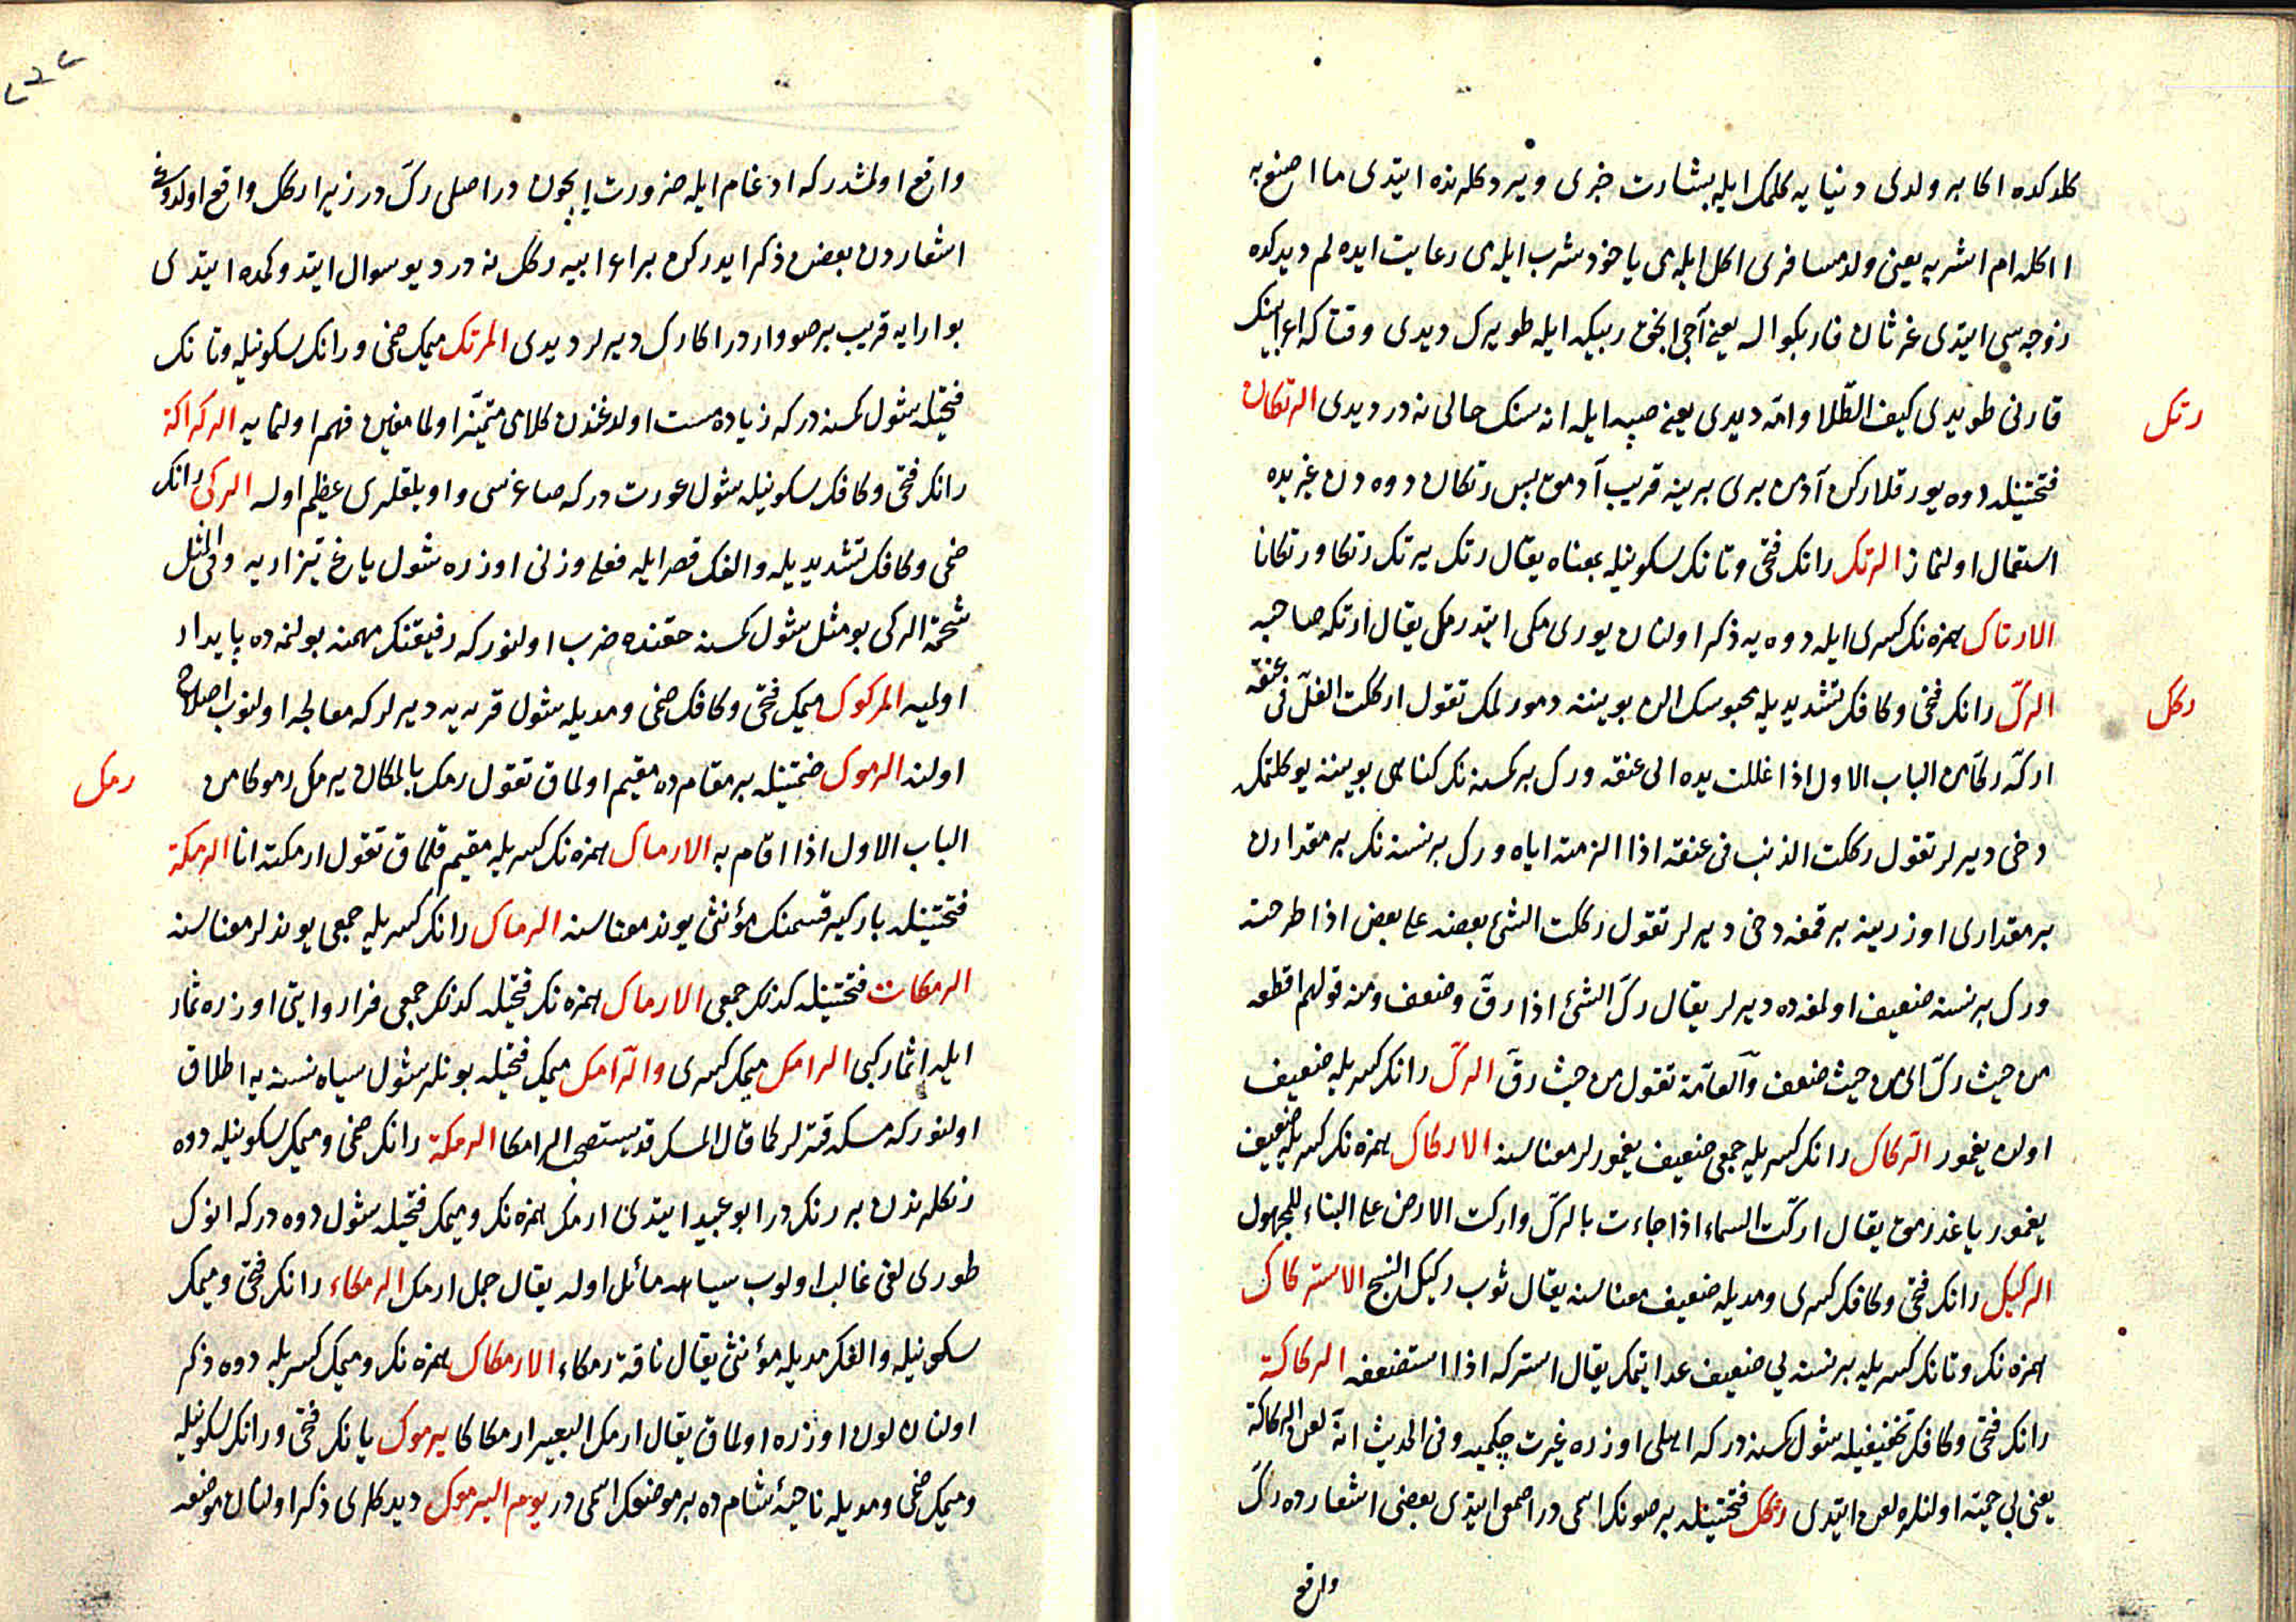 كلدكده اكا بر ولدى دنيايه كلمك ايله بشارت خبرى ويردكلرنده ايتدى ما اصنع به
ااكله ام اشربه يعنى ولد مسافرى اكل ايلەيى ياخود شرب ايلەيى رعايت ايده لم ديدكده
زوجه سى ايتدى غرثان فاربكوا له يعنى آجى ايجون ربيكه ايله طويرك ديدى وقتاكه اعرابينك
قارنى طويدى كيف الطلا وامّه ديدى يعنى صبيه ايله اناسنك حالى نه در ديدى الرتكان
رتك
فتحتينله دوه يورقلاركن آدمن برى برينه قريب آدمق بس رتكان دوه دن غيريده
استعمال اولنماز الرتك رانك فتحى وتانك سكونيله بمعناه يقال رتك يرتك رتكا ورتكانا
الارتاك همزه نك كسرى ايله دوه يه ذكر اولنان يورى مكى ايتدرمك يقال ارتكه صاحبه
الركّ رانك فتحى وكافك تشديديله محبوسك الن بويننه دمورلمك تقول اركلت الغلّ فى عنقه
ركك
اركّه ركّا من الباب الاول اذا غللت يده الى عنقه ورك بر كمسنه نك كناهى بويننه يوكلتمك
دخى ديرلر تقول رككت الذنب فى عنقه اذا الزمته اياه ورك بر نسنه نك بر مقدارن
بر مقدارى اوزرينه برقمغه دخى ديرلر تقول رككت الشئ بعضه على بعض اذا طرحته
ورك بر نسنه ضعيف اولمغه ده ديرلر يقال ركّ الشئ اذا رقّ وضعف ومنه قولهم اقطعه
من حيث ركّ اى من حيث ضعف والعامّة تقول من حيث رقّ الركّ رانك كسريله ضعيف
اولان يغمور الركاك رانك كسريله جمعى ضعيف يغمورلر معناسنه الاركاك همزه نك كسريله ضعيف
يغمور ياغدرمق يقال اركّت السماء اذا جاءت بالركّ واركت الارض على البناء للمجهول
الركيك رانك فتحى وكافك كسرى ومديله ضعيف معناسنه يقال ثوب ركيك النسج الاستركاك
همزه نك وتانك كسريله بر نسنه يى ضعيف عد ايتمك يقال استركه اذا استضعفه الركاكة
رانك فتحى وكافك تخفيفيله شول كمسنه دركه اهلى اوزره غيرت چكميه وفى الحديث انه لعن الركاكة
يعنى بى حميت اولنلره لعن ايتدى ركك فتحتينله بر صونك اسمى در اصمعى ايتدى بعضى اشعارده ركّ
واقع
واقع اولمشدركه ادغام ايله ضرورت ايچون در اصلى ركّ در زيرا ركك واقع اولدوغى
اشعاردن بعضن ذكر ايدركن بر اعرابيه ركك نه در ديو سوال ايتدوكمده ايتدى
بوارايه قريب بر صو واردر اكا رك ديرلر ديدى المرتك ميمك ضمى ورانك سكونيله وتانك
فتحيله شول كمسنه دركه زياده مست اولدغندن كلامى متميّز اولمامغين فهم اولنمايه الركراكة
رانك فتحى وكافك سكونيله شول عورت دركه صاغرىسى واويلقلرى عظيم اوله الركى رانك
ضمى وكافك تشديديله والفك قصر ايله فعلى وزنى اوزره شول ياغ تيز اريه وفى المثل
شحمة الركى بو مثل شول كمسنه حقنده ضرب اولنوركه رفيقنك مهمنه بولنمده پايدار
اولميه المركوك ميمك فتحى وكافك ضمى ومديله شول قربه يه ديرلركه معالجه اولنوب اصلاح
اولنه الرموك ضمتينله بر مقامده مقيم اولماق تقول رمك بالمكان يرمك رموكا من
رمك
الباب الاول اذا اقام به الارماك همزه نك كسريله مقيم قلماق تقول ارمكته انا الرمكة
فتحتينله باركير قسمنك مؤنثى يوند معناسنه الرماك رانك كسريله جمعى يوندلر معناسنه
الرمكات فتحتينله كذلك جمعى الارماك همزه نك فتحيله كذلك جمعى فرا روايتى اوزره ثمار
ايله اثمار كبى الرامك ميمك كسرى والرامك ميمك فتحيله بونلر شول سياه نسنه يه اطلاق
اولنوركه مسكه قترلر كما قال المسك قد يستصحب الرامكا الرمكة رانك ضمى وميمك سكونيله دوه
رنكلرندن بر رنكدر ابو عبيد ايتدى ارمك همزه نك وميمك فتحيله شول دوه دركه انوك
طورى لغى غالب اولوب سياهه مائل اوله يقال جمل ارمك الرمكاء رانك فتحى وميمك
سكونيله والفك مديله مؤنثى يقال ناقة رمكاء الارمكاك همزه نك وميمك كسريله دوه ذكر
اولنان لون اوزره اولماق يقال ارمك البعير ارمكاكا يرموك يانك فتحى ورانك سكونيله
وميمك ضمى ومديله ناحيۀ شامده بر موضعك اسمى در يوم اليرموك ديدكلرى ذكر اولنان موضعه